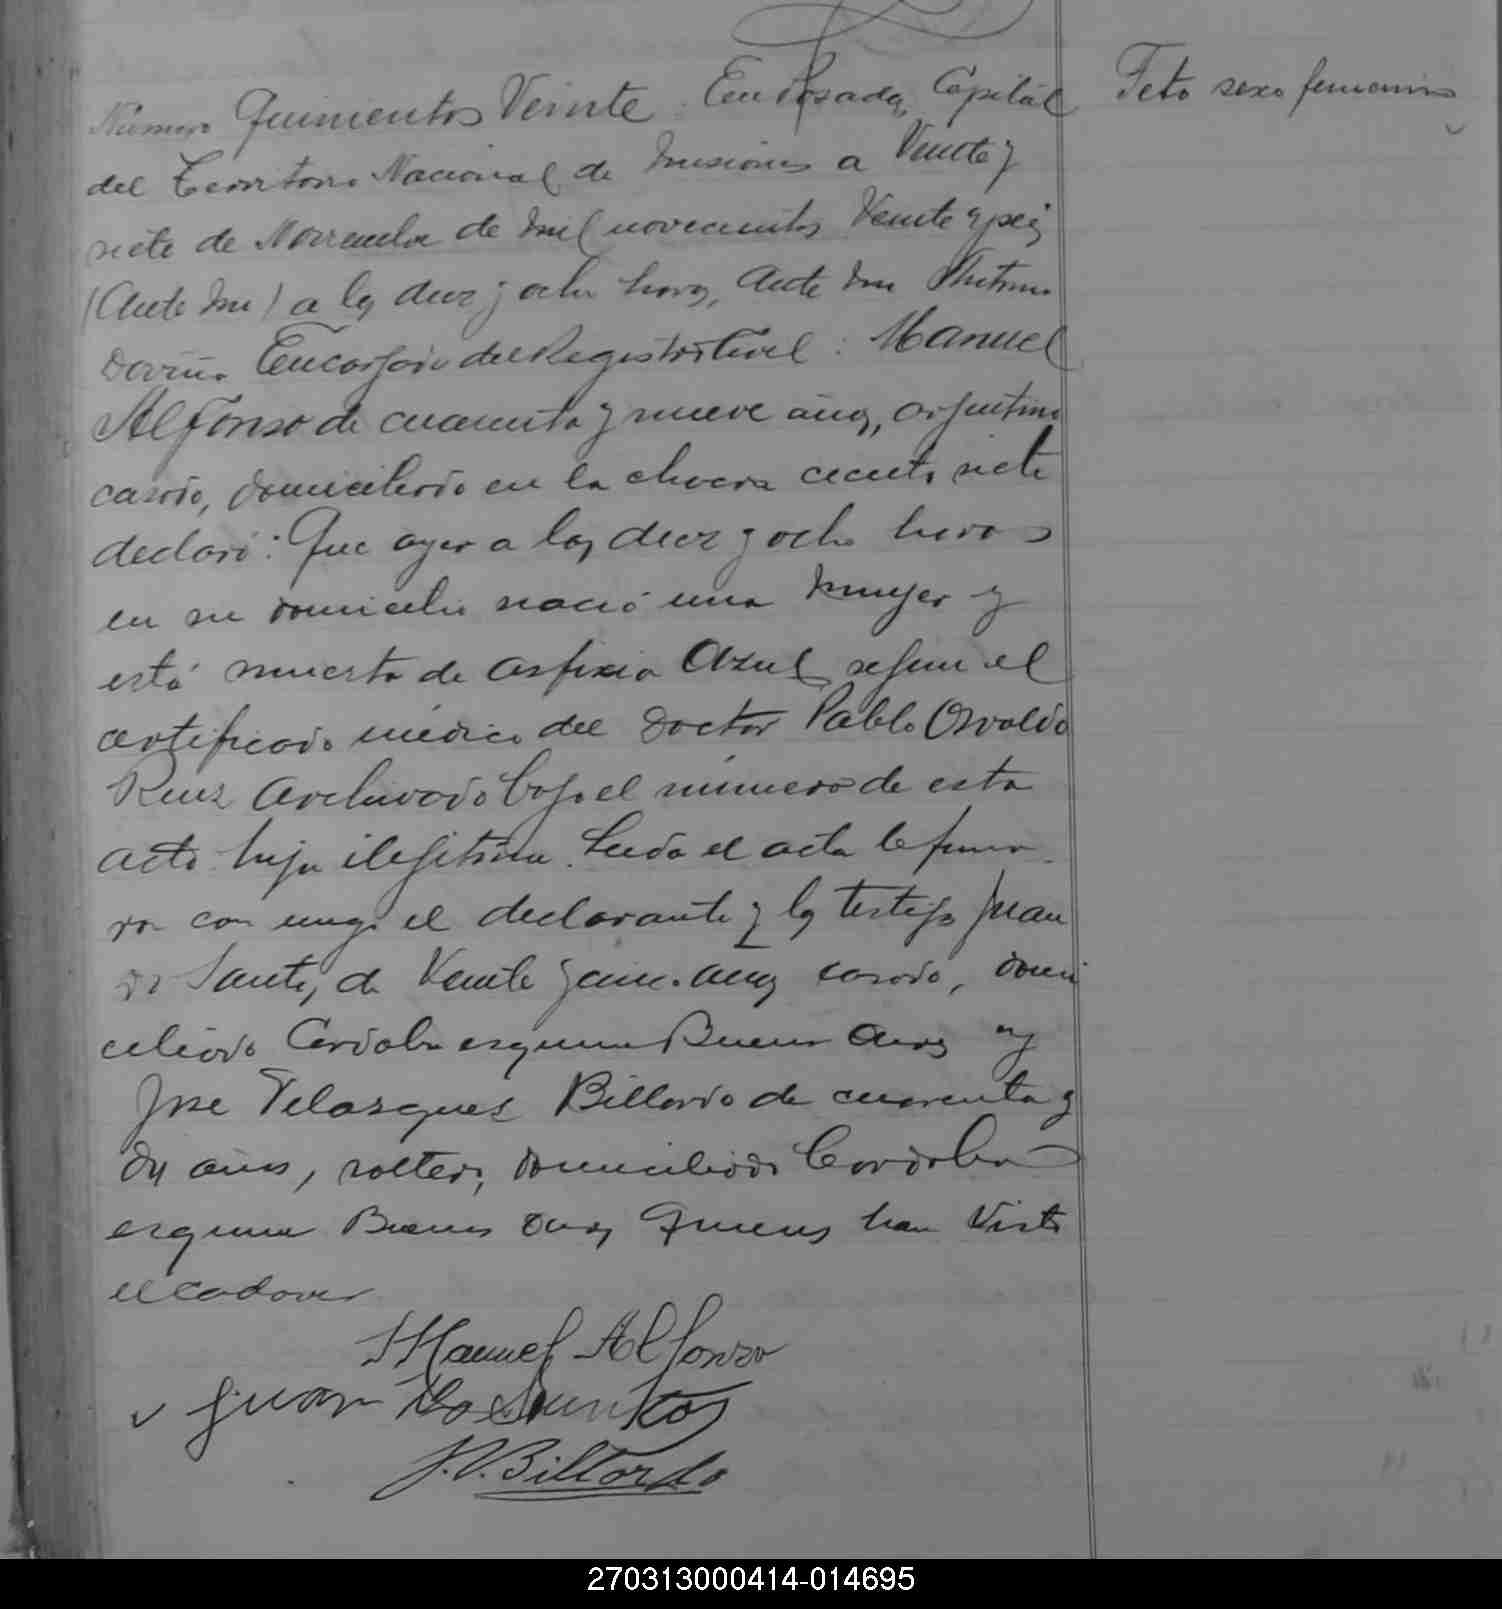 Feto sexo femenino
Número Quinientos Veinte. En Posadas, Capital
del Territorio Nacional de Misiones a Veinte y
siete de Noviembre de mil novecientos Veinte y seis
(Ante mi) a las diez y ocho horas, Ante mi Antonio
Encargado del Registro Civil: Manuel
Alfonso de cuarenta y nueve años, argentino
casado, domiciliado en la chacra ciento siete
declaró: Que ayer a las diez y ocho horas
en su domicilio nació una mujer y
está muerta de asfixia Azul, segun el
certificado médico del Doctor Pablo Osvaldo
Ruiz Archivado bajo el número de esta
acta hija ilegitima. Leida el acta la firma-
ron conmigo el declarante y los testigos Juan
do Santos, de Veinte y años casado, domi
ciliado Cordoba esquina Buenos Aires y
Jose Velasques Billordo de cuarenta y
dos años, soltero, domiciliado Cordoba
esquina Buenos Aires, Quienes han Visto
el cadaver
Manuel Alfonzo
Juan Do Santos
J.V. Billordo
270313000414-014695